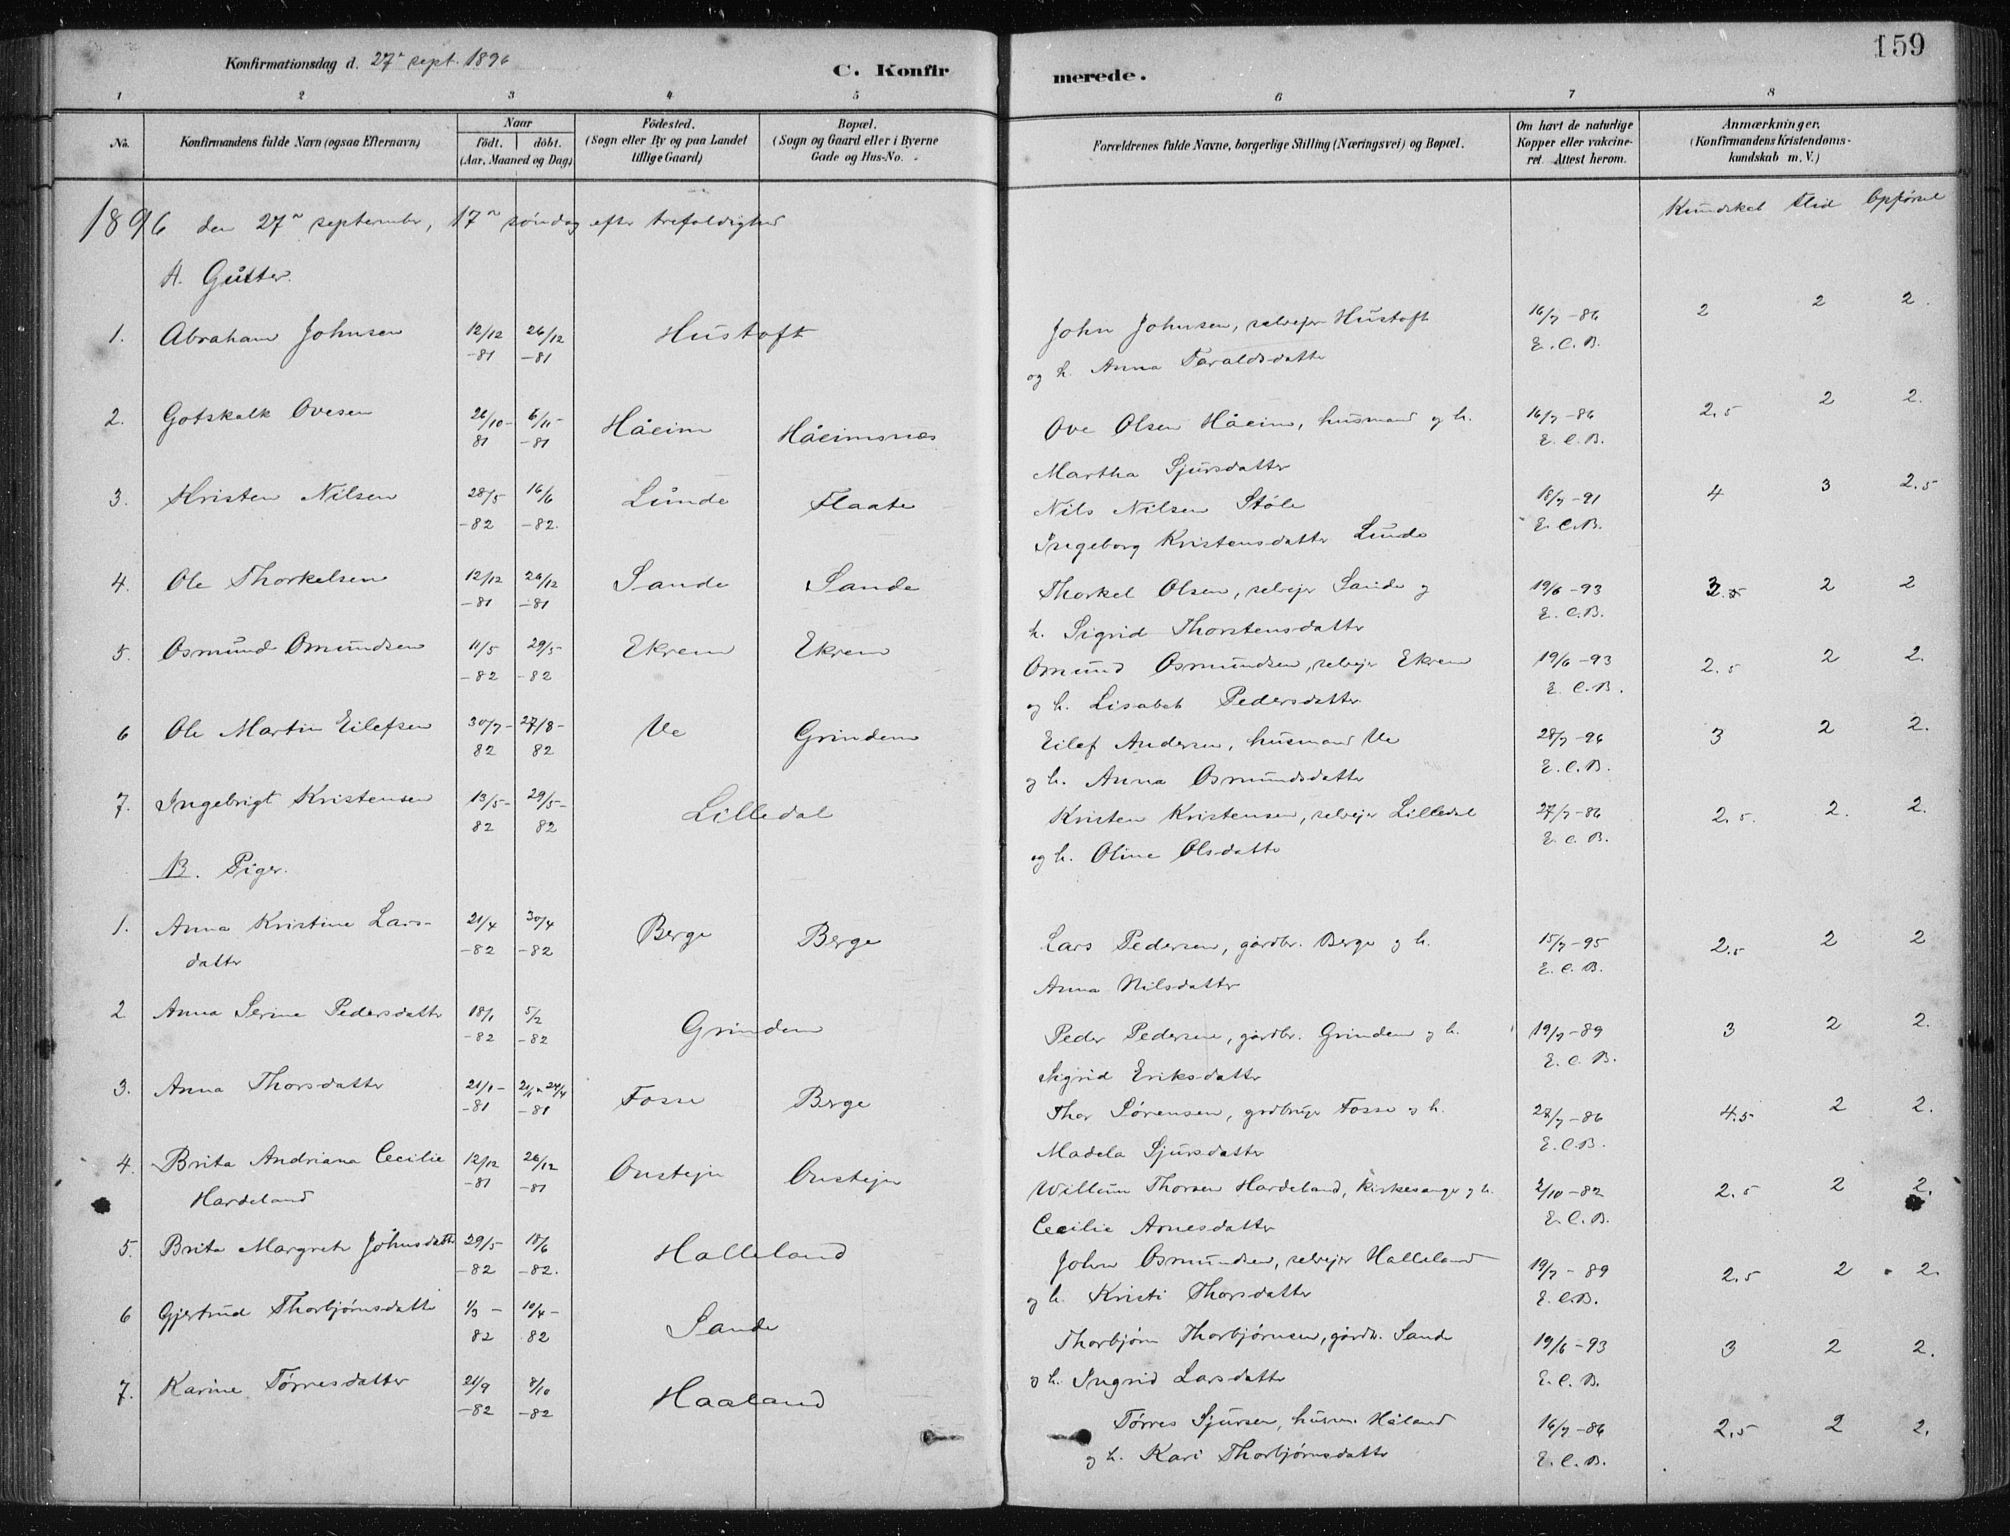 Konfirmationsdag d. 27de sept. 1896
C. Konfir
merede.
159
1 2 3 4 5 6 7 8
No. Konfirmandens fulde Navn (ogsaa Efternavn) Naar födt. döbt. (Aar, Maaned og Dag) Födested. (Sogn eller By og paa Landet tillige Gaard) Bopæl. (Sogn og Gaard eller i Byerne Gade og Hus-No. Forældrenes fulde Navne, borgerlige Stilling (Næringsvei) og Bopæl. Om havt de naturlige Kopper eller vakcineret. Attest herom. Anmærkninger. (Konfirmandens Kristendomskundskab m. V.)
Kundskab flid Opførsel
1896 den 27de september, 17de søndag efter trefoldighed
A. Gutter.
1. Abraham Johnsen 12/12 -81 26/12 -81 Hustoft John Johnsen, selvejer Hustoft 16/7 -86 2 2 2.
og h. Anna Taraldsdatter E.C.B.
2. Gotskalk Ovesen 26/10 - 81 6/11 - -81 Håeim Håeimsnæs Ove Olsen Håeim, husmand og h. 16/7 -86 2.5 2 2.
Martha Sjursdatter E.C.B.
3. Kristen Nilsen 28/5 -82 16/6 -82. Lunde Flaate Nils Nilsen Støle 18/7 -91 4 3 2.5
Ingeborg Kristensdatter Lunde E.C.B.
4. Ole Thorkelsen 12/12 -81 26/12 -81 Sande Sande Thorkel Olsen, selvejer Sande og 19/6 -93 2 2
h. Sigrid Thorstensdatter E.C.B.
5. Osmund Omundsen 11/5 -82 29/5 -82 Ekrem Ekrem Omund Osmundsen, selvejer Ekrem 19/6 -93 2.5 2 2.
og h. Lisabet Pedersdatter E.C.B.
6 Ole Martin Eilefsen 30/7 - 82 27/8 - 82 Ve Grindem Eilef Andersen, husmand Ve 28/7 -96 3 2 2.
og h. Anna Osmundsdatter E.C.B.
7. Ingebrigt Kristensen 13/5 - 82 29/5 - 82 Lilledal Kristen Kristensen, selvejer Lilledal 27/7 -86 2.5. 2. 2.
og h. Oline Olsdatter E.C.B.
B. Piger.
1. Anna Kristine Lars- 21/4 -82 30/4 -82 Berge Berge Lars Pedersen, gårdbr. Berge og h. 15/7 -95 2.5 2 2
datter Anna Nilsdatter E.C.B.
2 Anna Serine Pedersdatter 18/1 -82 5/2 -82 Grindem Peder Pedersen, gårdbr. Grindem og h. 19/7 -89 3 2 2.
Sigrid Eriksdatter E.C.B.
3. Anna Thorsdatter 21/1 - -81 -81 Fosse Berge Thor Sørensen, grdbruger Fosse og h. 27/7 -86 4.5 2 2.
Madela Sjursdatter E.C.B.
4. Brita Andriana Cecilie 12/12 -81 26/12 -81 Onstejn Onstejn Willum Thorsen Hardeland, kirkesanger og h. 2/10 -82 2.5 2 2.
Hardeland Cecilie Arnesdatter E.C.B.
5. Brita Margrete Johnsdatter 29/5 -82 18/6 -82. Halleland John Osmundsen, selvejer Halleland 19/7 - 89 2.5 2 2.
og h. Kristi Thorsdatter E.C.B.
6 Gjertrud Thorbjørnsdatter 1/3 - 82 10/4 - 82 Sande Thorbjørn Thorbjørnsen, gårdb. Sande 19/6 -93 3 2 2.
og h. Ingrid Larsdatter E.C.B.
7. Karine Tørresdatter 21/9 -82 8/10 -82 Haaland Tørres Sjursen, husm. Håland 16/7 -86 2.5 2 2.
og h. Kari Thorbjørnsdatter E.C.B.